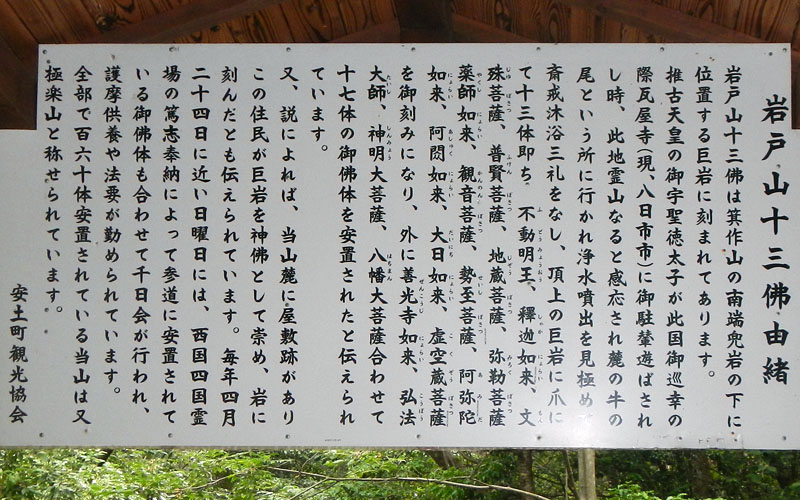 岩戸山十三佛由緒
岩戸山十三佛は箕作山の南端兜岩の下に
位置する巨岩に刻まれてあります。
推古天皇の御宇聖徳太子が此国御巡幸の
際瓦屋寺(現、八日市市)に御駐輦遊ばされ
し時、此地霊山なると感応され麓の牛の
尾という所に行かれ浄水噴出を見極め
斎戒沐浴三礼をなし、頂上の巨岩に爪に
て十三体即ち、不動明王、釋迦如来、文
殊菩薩、普賢菩薩、地蔵菩薩、弥勒菩薩
薬師如来、観音菩薩、勢至菩薩、阿弥陀
如来、阿閦如来、大日如来、虚空蔵菩薩
を御刻みになり、外に善光寺如来、弘法
大師、神明大菩薩、八幡大菩薩合わせて
十七体の御佛体を安置されたと伝えられ
ています。
又、説によれば、当山麓に屋敷跡があり
この住民が巨岩を神佛として崇め、岩に
刻んだとも伝えられています。毎年四月
二十四日に近い日曜日には、西国四国霊
場の篤志奉納によって参道に安置されて
いる御佛体も合わせて千日会が行われ、
護摩供養や法要が勤められています。
全部で百六十体安置されている当山は又
極楽山と称せられています。
安土町観光協会